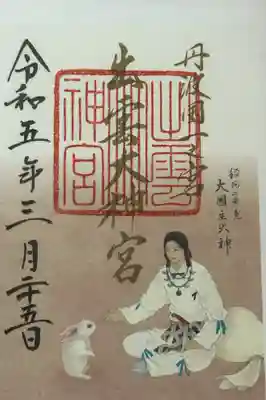 丹波国一之宮
出雲大神宮
令和五年三月二十五日
出雲
神宮
大国主大神